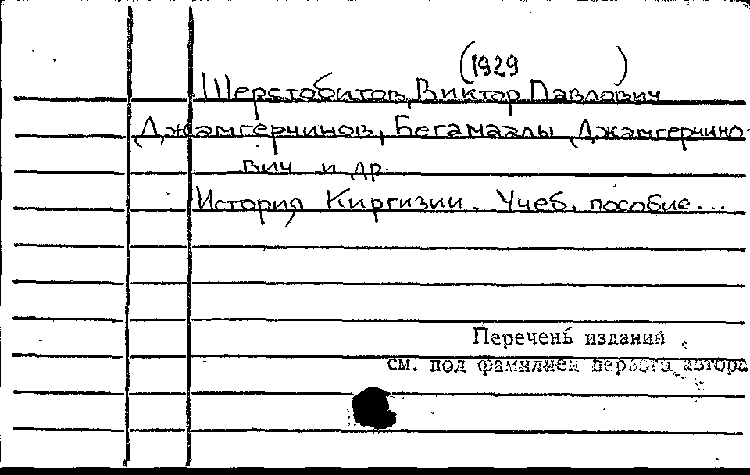 (1929 )
Шерстобитов, Виктор Павлович
Джамгерчинов, Бегамаалы Джамгерчино-
вич и др.
История Киргизии. Учеб. пособие...
Перечень изданий
см. под фамилией первого автора